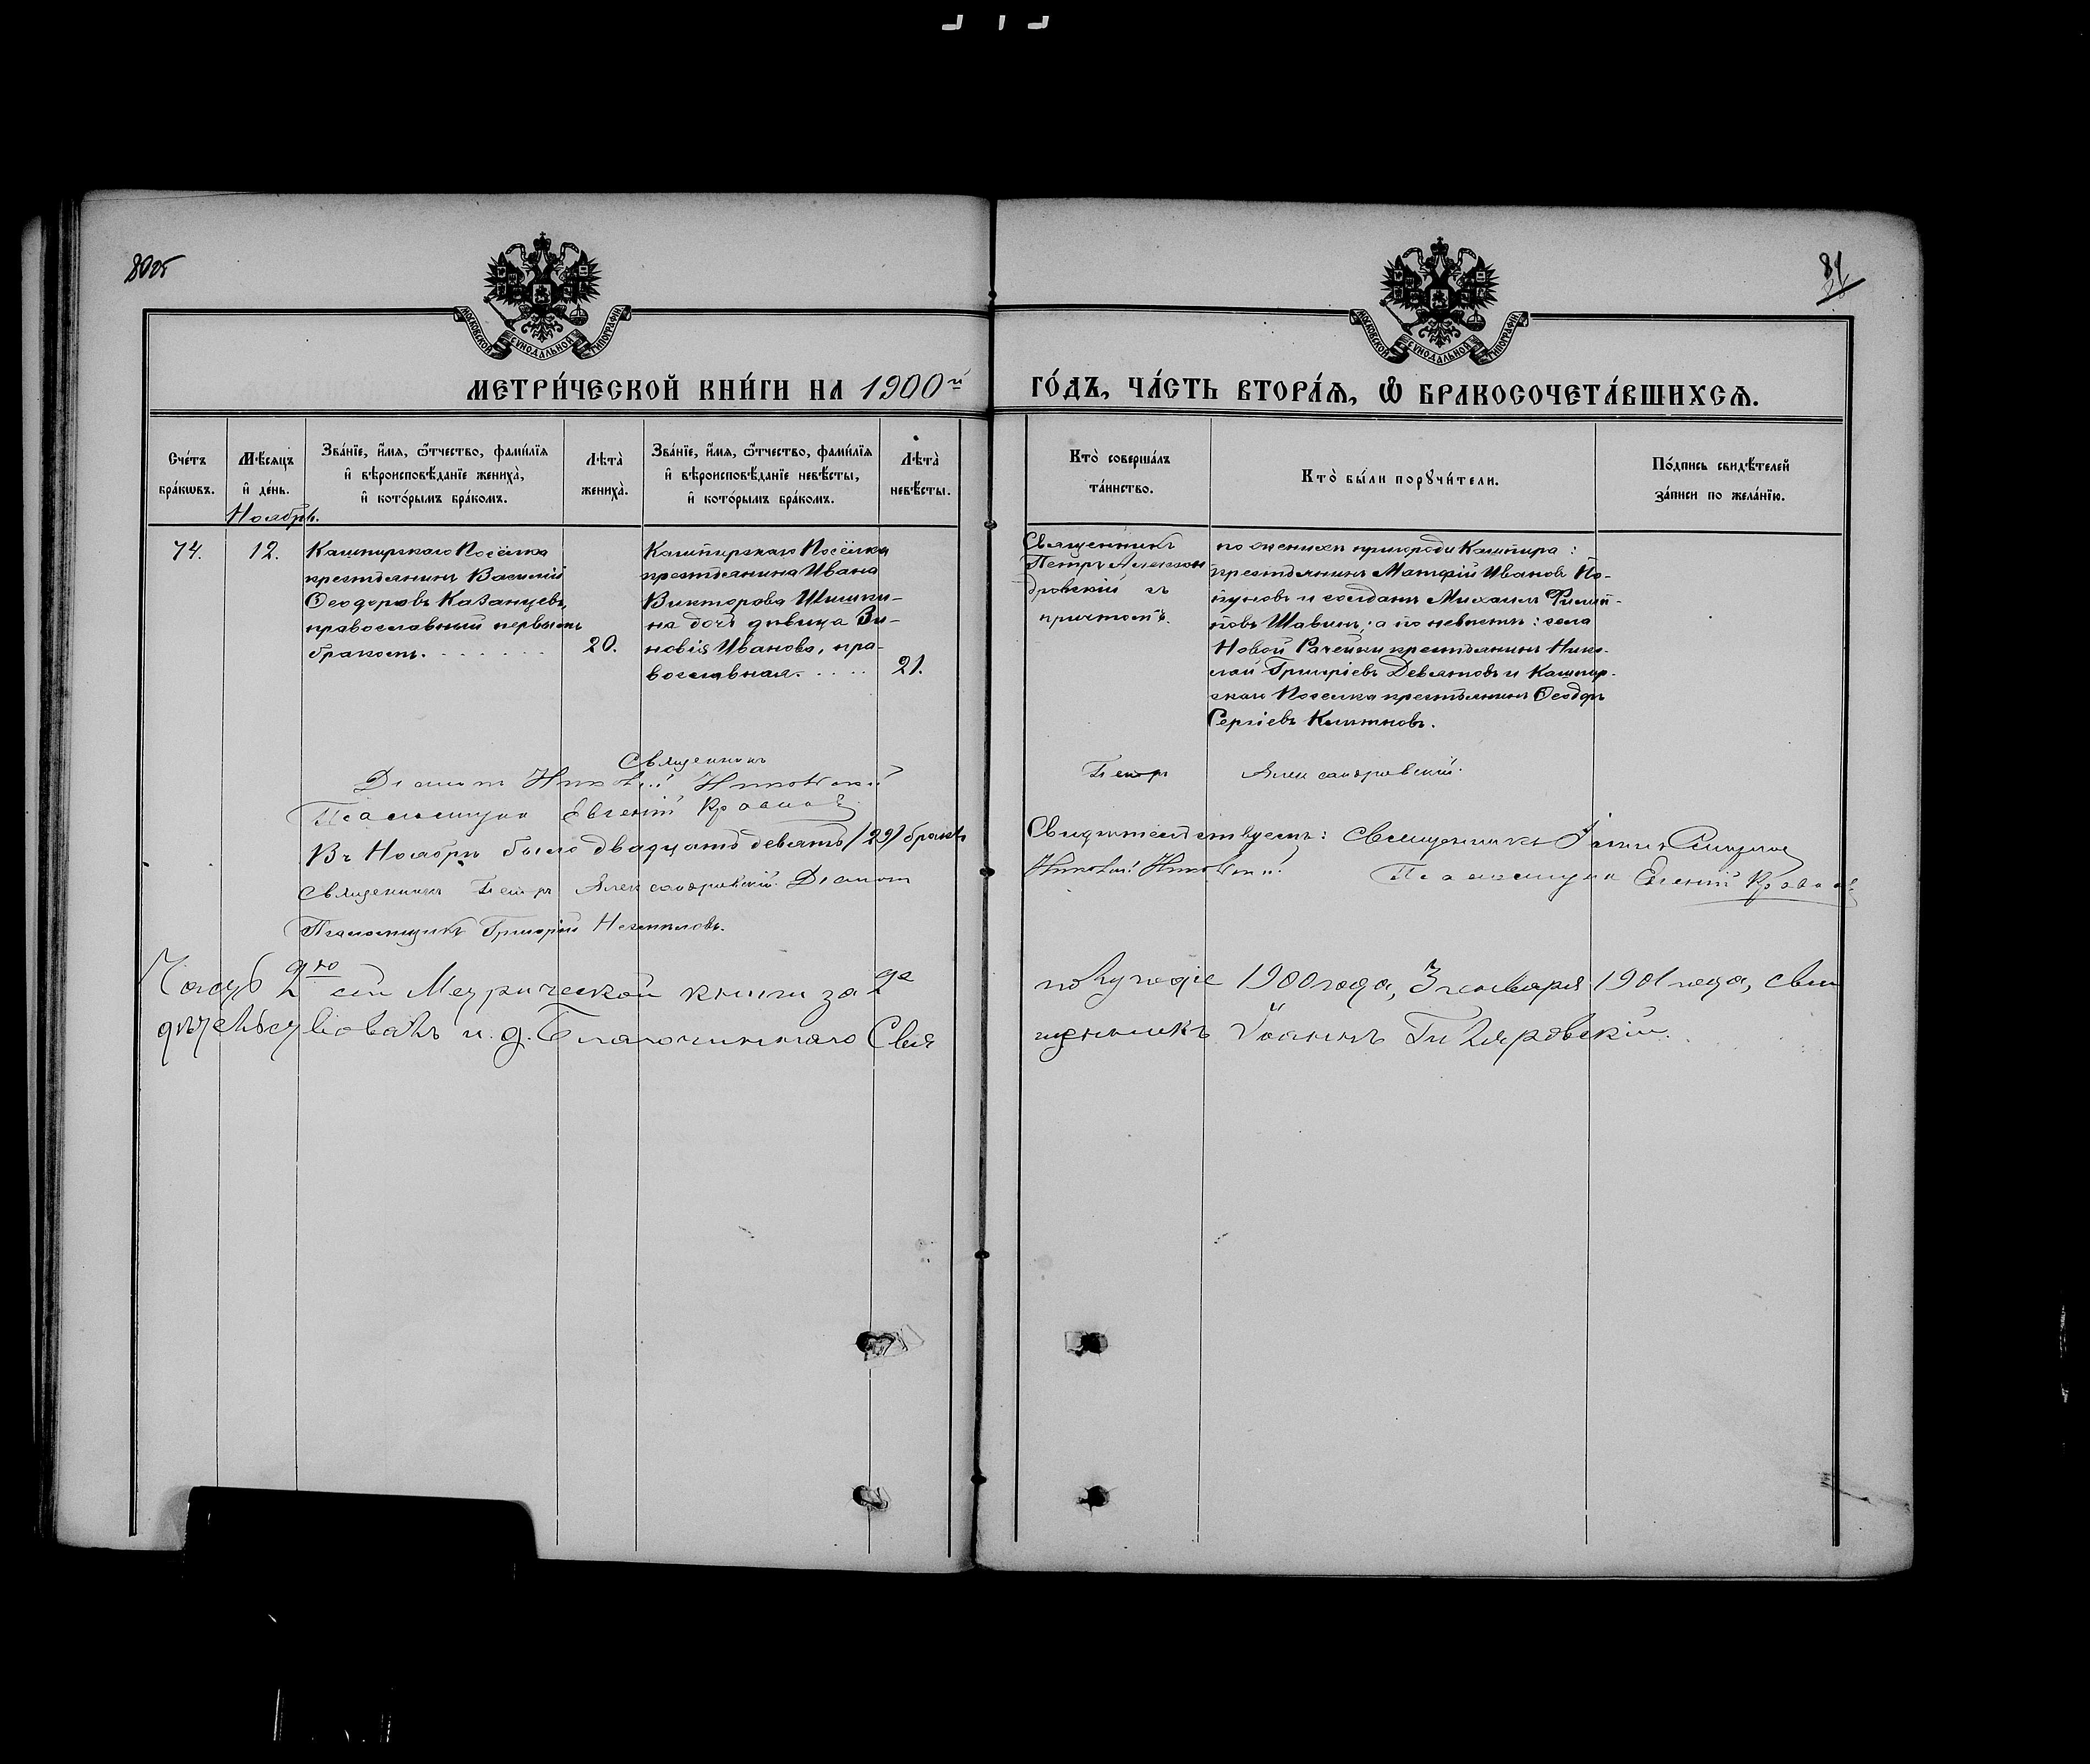 80об
84
МОСКОВСКОЙ СѴНОДАЛЬНОЙ ТИПОГРАФІИ
МОСКОВСКОЙ СѴНОДАЛЬНОЙ ТИПОГРАФІИ
МЕТРИ́ЧЕСКОЙ КНИ́ГИ НА 1900й ГО́ДЪ, ЧА́СТЬ ВТОРА́Я, Ѽ БРАКОСОЧЕТА́ВШИХСѦ.
Сче́тъ
бра́кѡвъ.
Мѣ́сяцъ
и҆ де́нь.
Ноябрь.
Зва́нїе, и҆́мя, ѻ҆́тчество, фами́лїя
и҆ вѣроисповѣ́данїе жениха̀,
и҆ кото́рымъ бра́комъ.
Лѣта̀
жениха̀.
Зва́нїе, и҆́мя, ѻ҆́тчество, фами́лїя
и҆ вѣроисповѣ́данїе невѣ́сты,
и҆ кото́рымъ бра́комъ.
Лѣта̀
невѣ́сты.
Кто̀ соверша́лъ
та́инство.
Кто̀ бы́ли порꙋчи́тели.
По́дпись свидѣ́телей
за́писи по жела́нїю.
74.
12.
Кашпирскаго Посёлка
крестьянинъ Василій
Ѳеодоровъ Казанцевъ,
православный первымъ
бракомъ.
20.
Кашпирскаго Посёлка
крестьянина Ивана
Викторова Шишки-
на дочь дѣвица Зи-
новія Иванова, пра-
вославная.
21.
Священникъ
Петръ Алексан
дровскій съ
причтомъ.
по женихѣ пригорода Кашпира:
крестьянинъ Матѳій Ивановъ По-
пуновъ и солдатъ Михаилъ Филип-
повъ Шавинъ; а по невѣстѣ: села
Новой Рачейки крестьянинъ Нико-
лай Григоріевъ Девятовъ и Кашпир-
скаго Поселка крестьянинъ Ѳеодоръ
Сергіевъ
Священникъ Петръ Александровскій.
Діаконъ
Псаломщикъ Евгеній
Въ Ноябрѣ было двадцать девять /29/ браковъ
Свидѣтельствуемъ: Священникъ
Священникъ Петръ Александровскій. Діаконъ
Псаломщикъ Евгеній
Псаломщикъ Григорій
Часть 2ю сей Метрической книги за 2е полугодіе 1900 года, 3 января 1901 года, свид
дѣтельствовалъ и. д. Благочиннаго Свя
щенникъ Іоаннъ Гиляровскій.